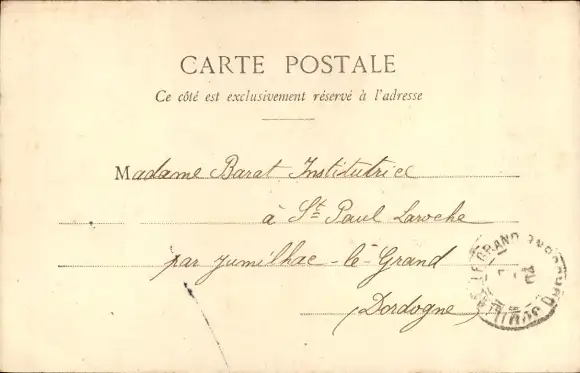 CARTE POSTALE
Ce côté est exclusivement réservé à l'adresse
Madame Barat Institutrice
à St Paul Laroche
par Jumilhac-le-Grand
(Dordogne)
LE GRAND